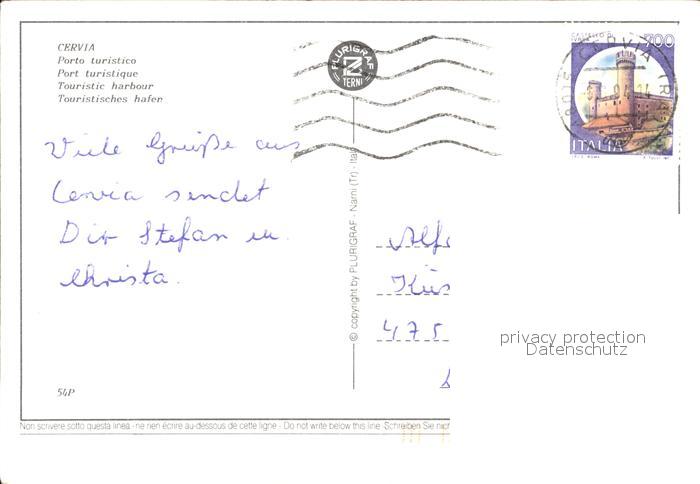 CERVIA
Porto turistico
Port turistique
Touristic harbour
Touristisches hafer
PLURIGRAF
TERNI
700
CERVIA
ITALIA
Viele Grüße aus
Cervia sendet
Dir Stefan u.
Christa.
© copyright by PLURIGRAF - Narni (Tr) - Ital
Alfo
Küs
475
privacy protection
Datenschutz
54P
Non scrivere sotto questa linea - ne rien écrire au-dessous de cette ligne - Do not write below this line - Schreiben Sie nich